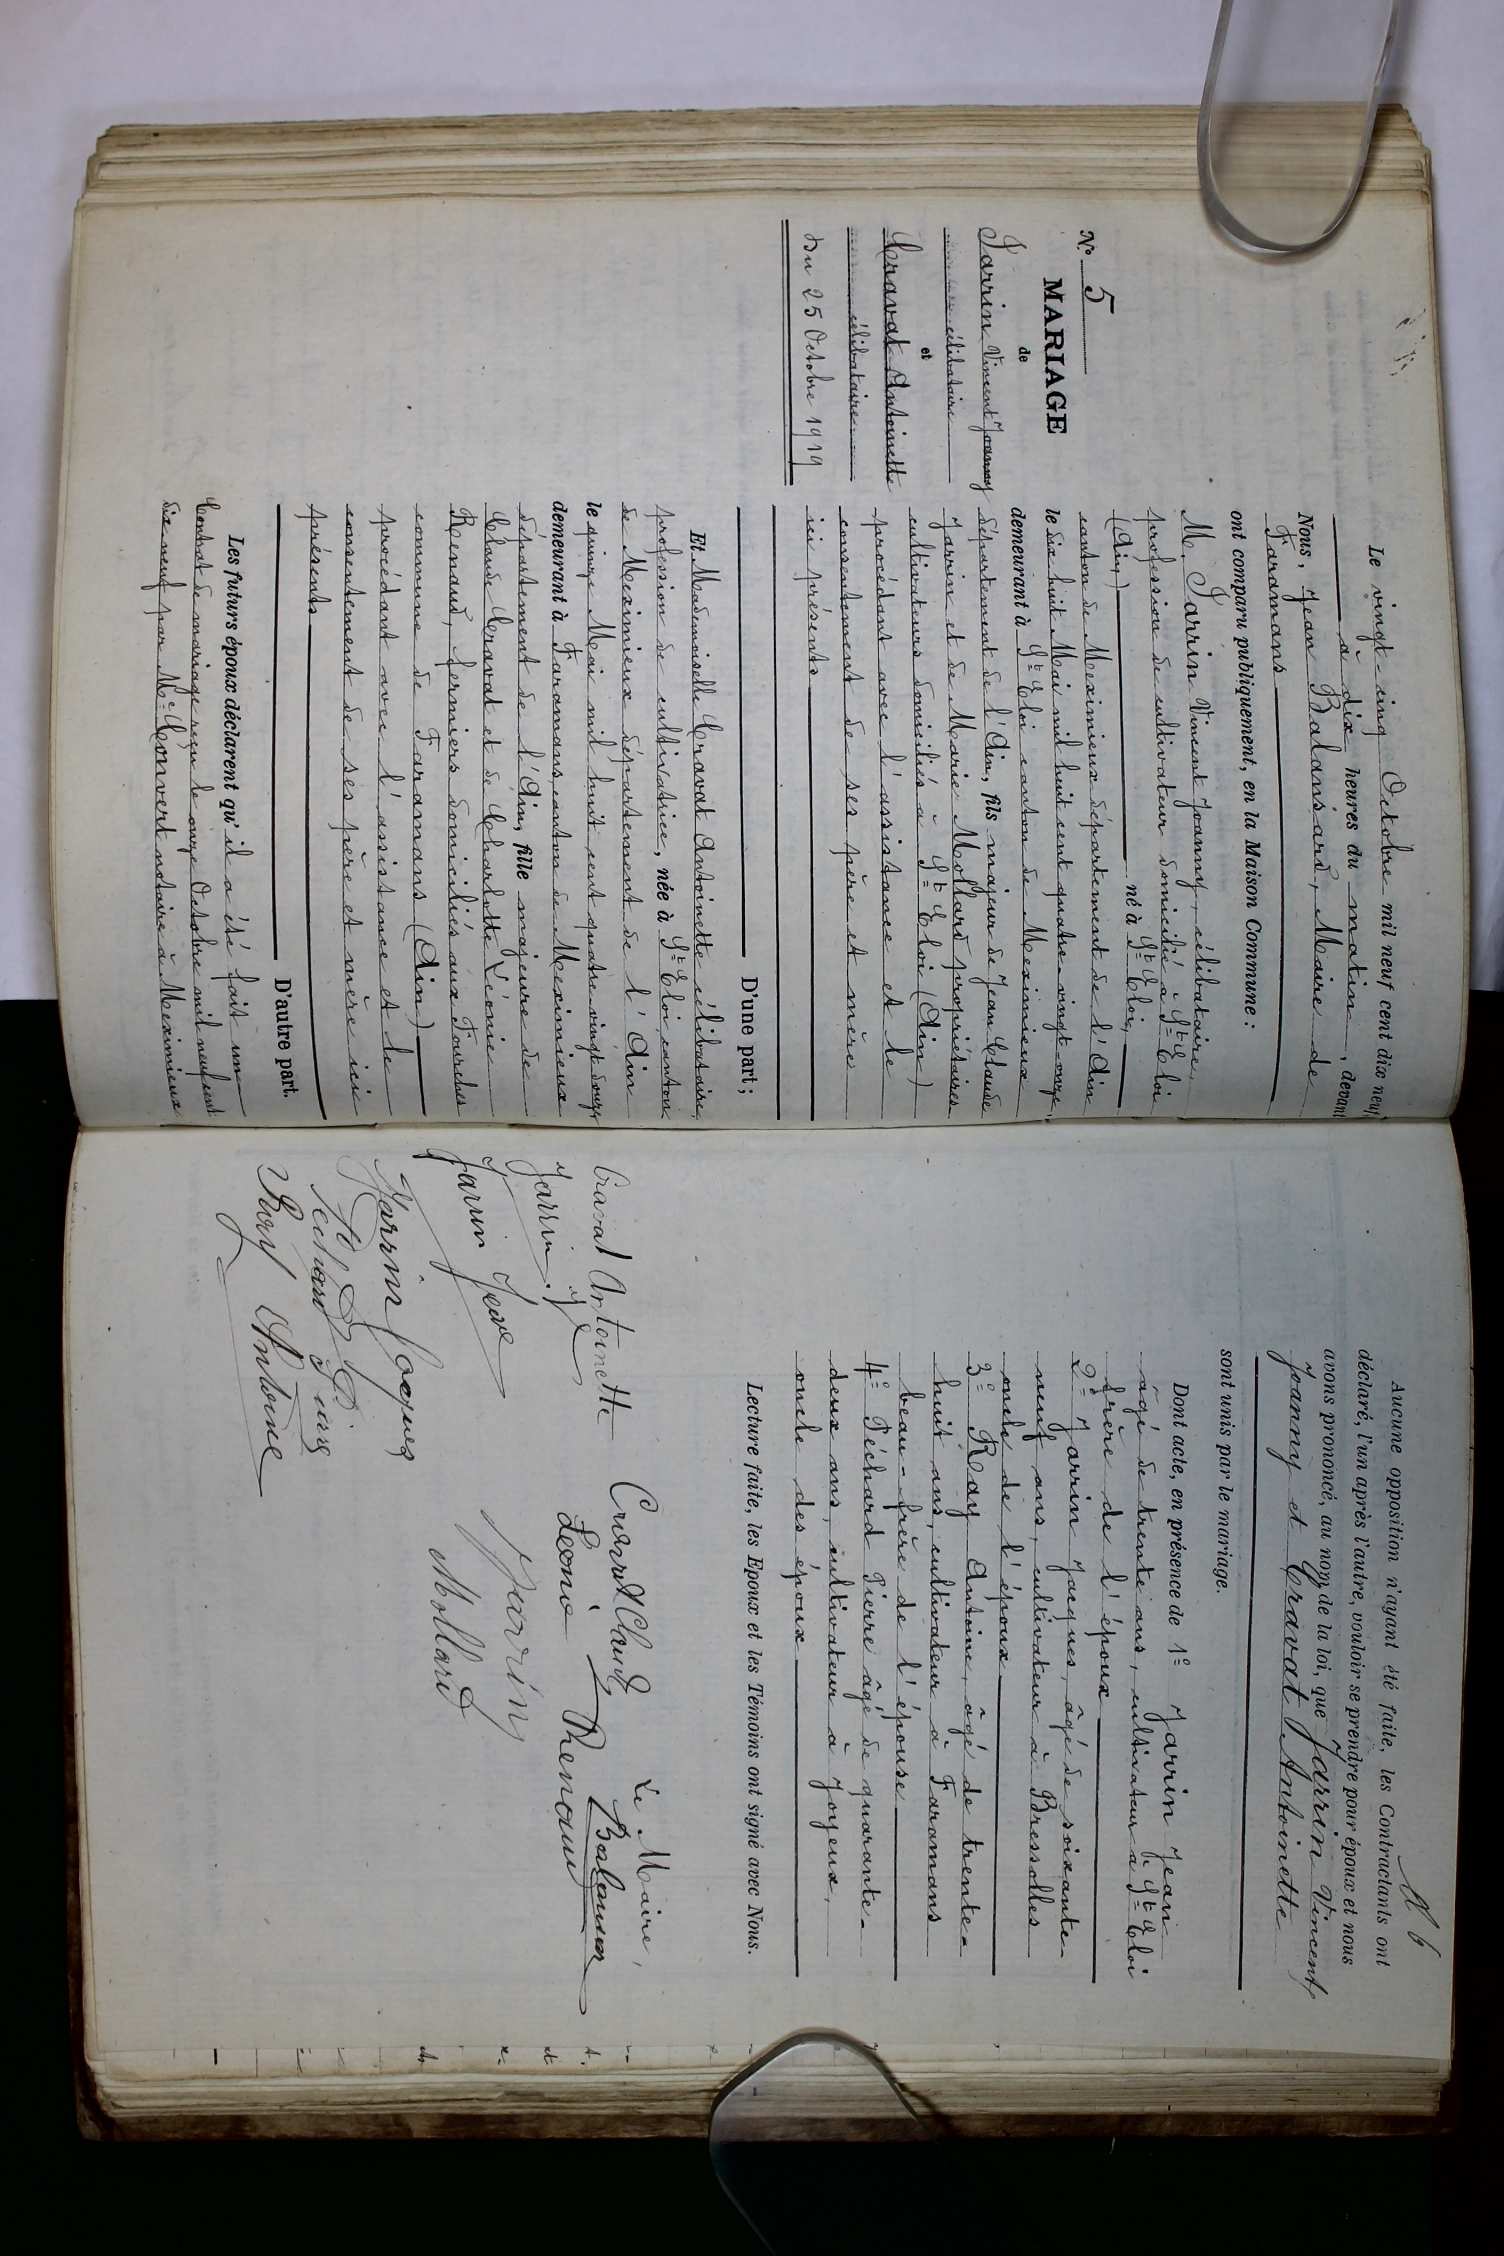 N° 5
MARIAGE
de
Jarrin Vincent Joanny
célibataire
et
Cravat Antoinette
célibataire
Du 25 Octobre 1919
Le vingt-cinq Octobre mil neuf cent dix neuf
à dix heures du matin, devant
Nous, Jean Balansard, Maire de
Faramans
ont comparu publiquement, en la Maison Commune :
M. Jarrin Vincent Joanny, célibataire,
profession de cultivateur domicilié à St Eloi
(Ain) né à St Eloi,
canton de Meximieux département de l'Ain
le dix huit Mai mil huit cent quatre-vingt-onze,
demeurant à St Eloi canton de Meximieux
département de l'Ain, fils majeur de Jean Claude
Jarrin et de Marie Mollard propriétaires
cultivateurs domiciliés à St Eloi (Ain)
procédant avec l'assistance et le
consentement de ses père et mère
ici présents
D'une part ;
Et Mademoiselle Cravat Antoinette célibataire,
profession de cultivatrice, née à St Eloi, canton
de Meximieux département de l'Ain
le quinze Mai mil huit cent quatre-vingt douze
demeurant à Faramans canton de Meximieux
département de l'Ain, fille majeure de
Claude Cravat et de Charlotte Léonie
Renaud, fermiers domiciliés aux Fourches
commune de Faramans (Ain)
procédant avec l'assistance et le
consentement de ses père et mère ici
présents
D'autre part.
Les futurs époux déclarent qu'il a été fait un
Contrat de mariage reçu le onze Octobre mil neuf cent
dix neuf par Me Convert notaire à Meximieux
N 6
Aucune opposition n'ayant été faite, les Contractants ont
déclaré, l'un après l'autre, vouloir se prendre pour époux et nous
avons prononcé, au nom de la loi, que Jarrin Vincent
Joanny et Cravat Antoinette
sont unis par le mariage.
Dont acte, en présence de 1° Jarrin Jean
âgé de trente ans, cultivateur à St Eloi
frère de l'époux
2° Jarrin Jacques, âgé de soixante-
neuf ans, cultivateur à Bressolles
oncle de l'époux
3° Ray Antoine, âgé de trente-
huit ans, cultivateur à Faramans
beau-frère de l'épouse
4° Péchard Pierre âgé de quarante-
deux ans, cultivateur à Joyeux,
oncle des époux
Lecture faite, les Epoux et les Témoins ont signé avec Nous.
Cravat Antoinette
Cravat Claude
Le Maire,
Balansard
Jarrin. V. J.
Léonie Renaud
Jarrin Jean
Jarrin
Jarrin Jacques
Mollard
Péchard Pierre
Ray Antoine